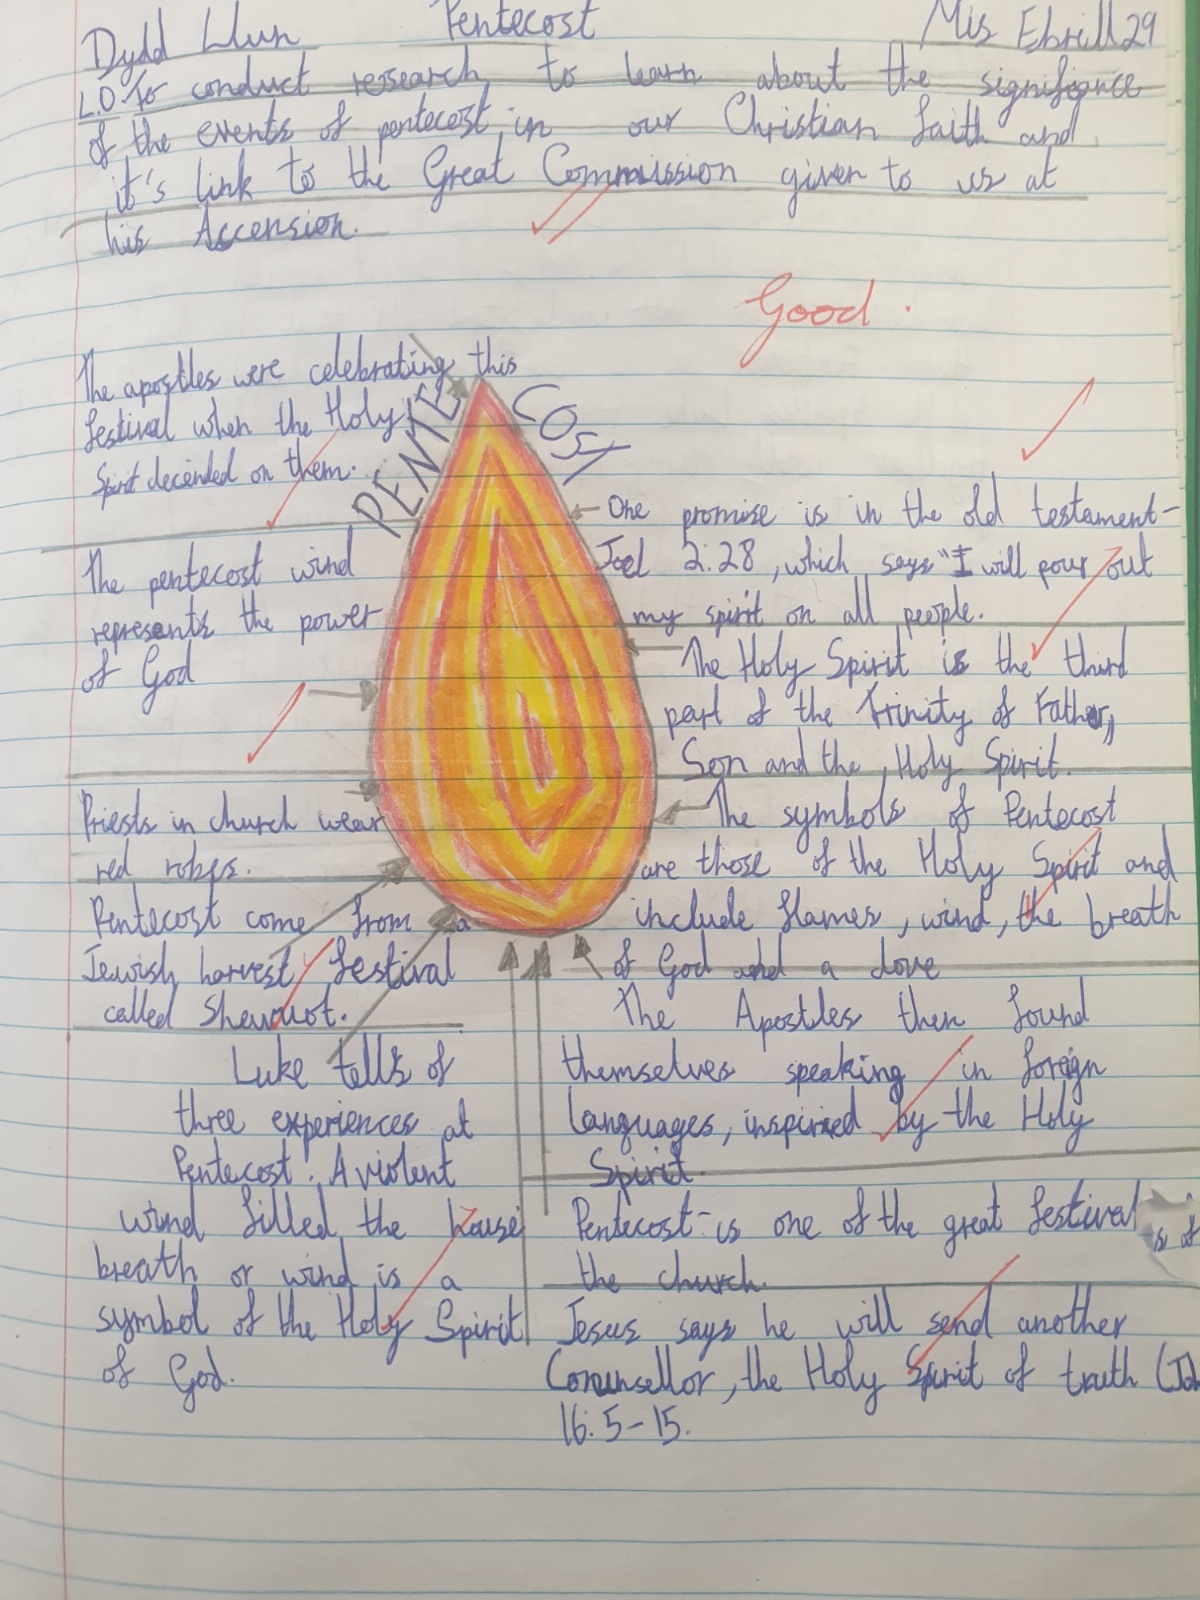 Dydd Llun Pentecost Mis Ebrill 29
L.O. To conduct research to learn about the significance
of the events of pentecost, in our Christian faith and
it's link to the Great Commission given to us at
his Accension.
Good.
The apostles were celebrating this
festival when the Holy
Spirit decended on them.
PENTECOST
The pentecost wind
represents the power
of God
Priests in church wear
red robes.
Pentecost come from a
Jewish harvest festival
called Shewuot.
Luke tells of
three experiences at
Pentecost: A violent
wind filled the house
breath or wind is a
symbol of the Holy Spirit
of God.
One promise is in the old testament-
Joel 2:28, which says "I will pour out
my spirit on all people.
The Holy Spirit is the third
part of the trinity of Father,
Son and the, Holy Spirit.
The symbols of Pentecost
are those of the Holy Spirit and
include flames, wind, the breath
of God and a dove
The Apostles then found
themselves speaking in foreign
languages, inspired by the Holy
Spirit.
Pentecost-is one of the great festival
the church.
s of
Jesus says he will send another
Counsellor, the Holy Spirit of truth (Joh
16:5-15.